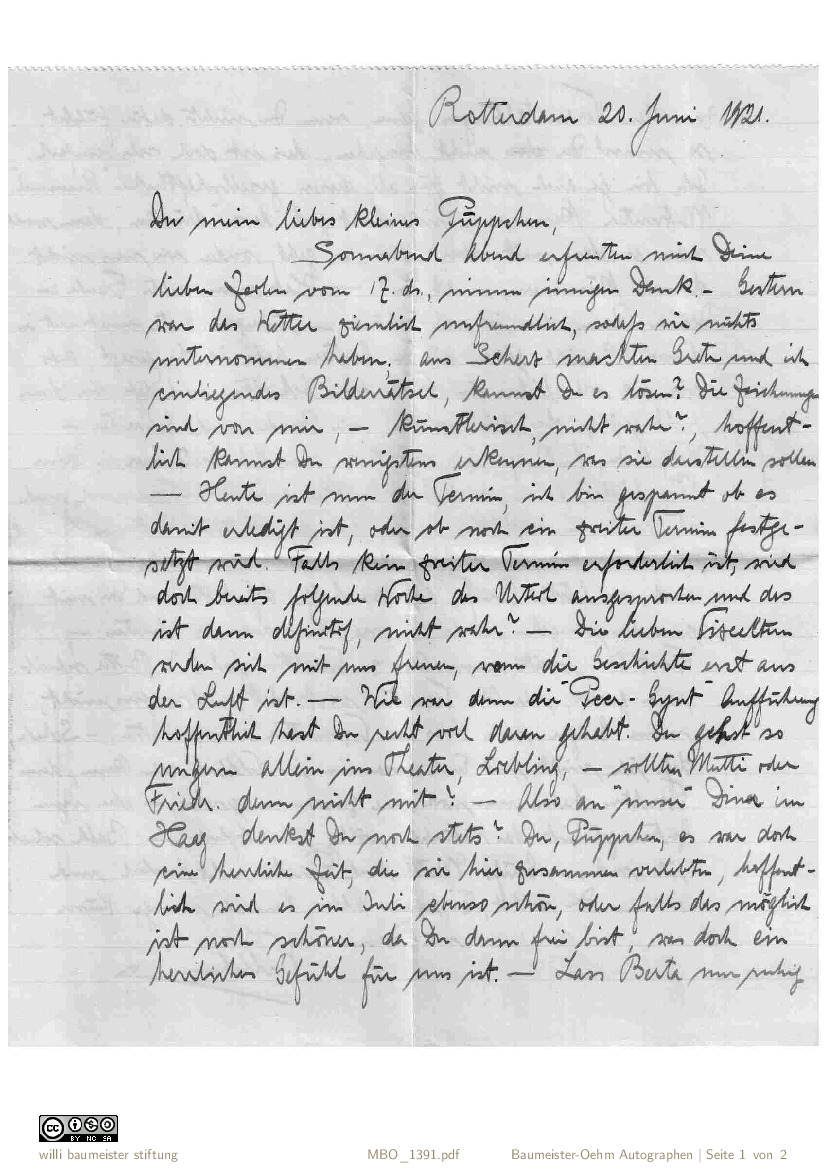 Rotterdam 20. Juni 1921.
Du mein liebes kleines Püppchen,
Sonnabend Abend erfreuten mich Deine
lieben Zeilen vom 17. ds., nimm innigen Dank. – Gestern
war das Wetter ziemlich unfreundlich, sodass wir nichts
unternommen haben; aus Scherz machten Grete und ich
einliegendes Bilderrätsel, kannst Du es lösen? Die Zeichnungen
sind von mir, – künstlerisch, nicht wahr?, hoffent-
lich kannst Du wenigstens erkennen, was sie darstellen sollen
— Heute ist nun der Termin, ich bin gespannt ob es
damit erledigt ist, oder ob noch ein zweiter Termin festge-
setzt wird. Falls kein zweiter Termin erforderlich ist, wird
doch bereits folgende Woche das Urteil ausgesprochen und das
ist dann definitif, nicht wahr? – Die lieben
werden sich mit uns freuen, wenn die Geschichte erst aus
der Luft ist. — Wie war denn die "Peer-Gynt" Aufführung
hoffentlich hast Du recht viel daran gehabt. Du gehst so
ungern allein ins Theater, Liebling, – wollten Mutti oder
Friedr. denn nicht mit? – Also an "unser" Diner im
Haag denkst Du noch stets? Du, Püppchen, es war doch
eine herrliche Zeit, die wir hier zusammen verlebten, hoffent-
lich wird es im Juli ebenso schön, oder falls das möglich
ist noch schöner, da Du dann frei bist, was doch ein
herrliches Gefühl für uns ist. — Lass Berta nur ruhig
willi baumeister stiftung
MBO_1391.pdf
Baumeister-Oehm Autographen | Seite 1 von 2
CC BY NC SA